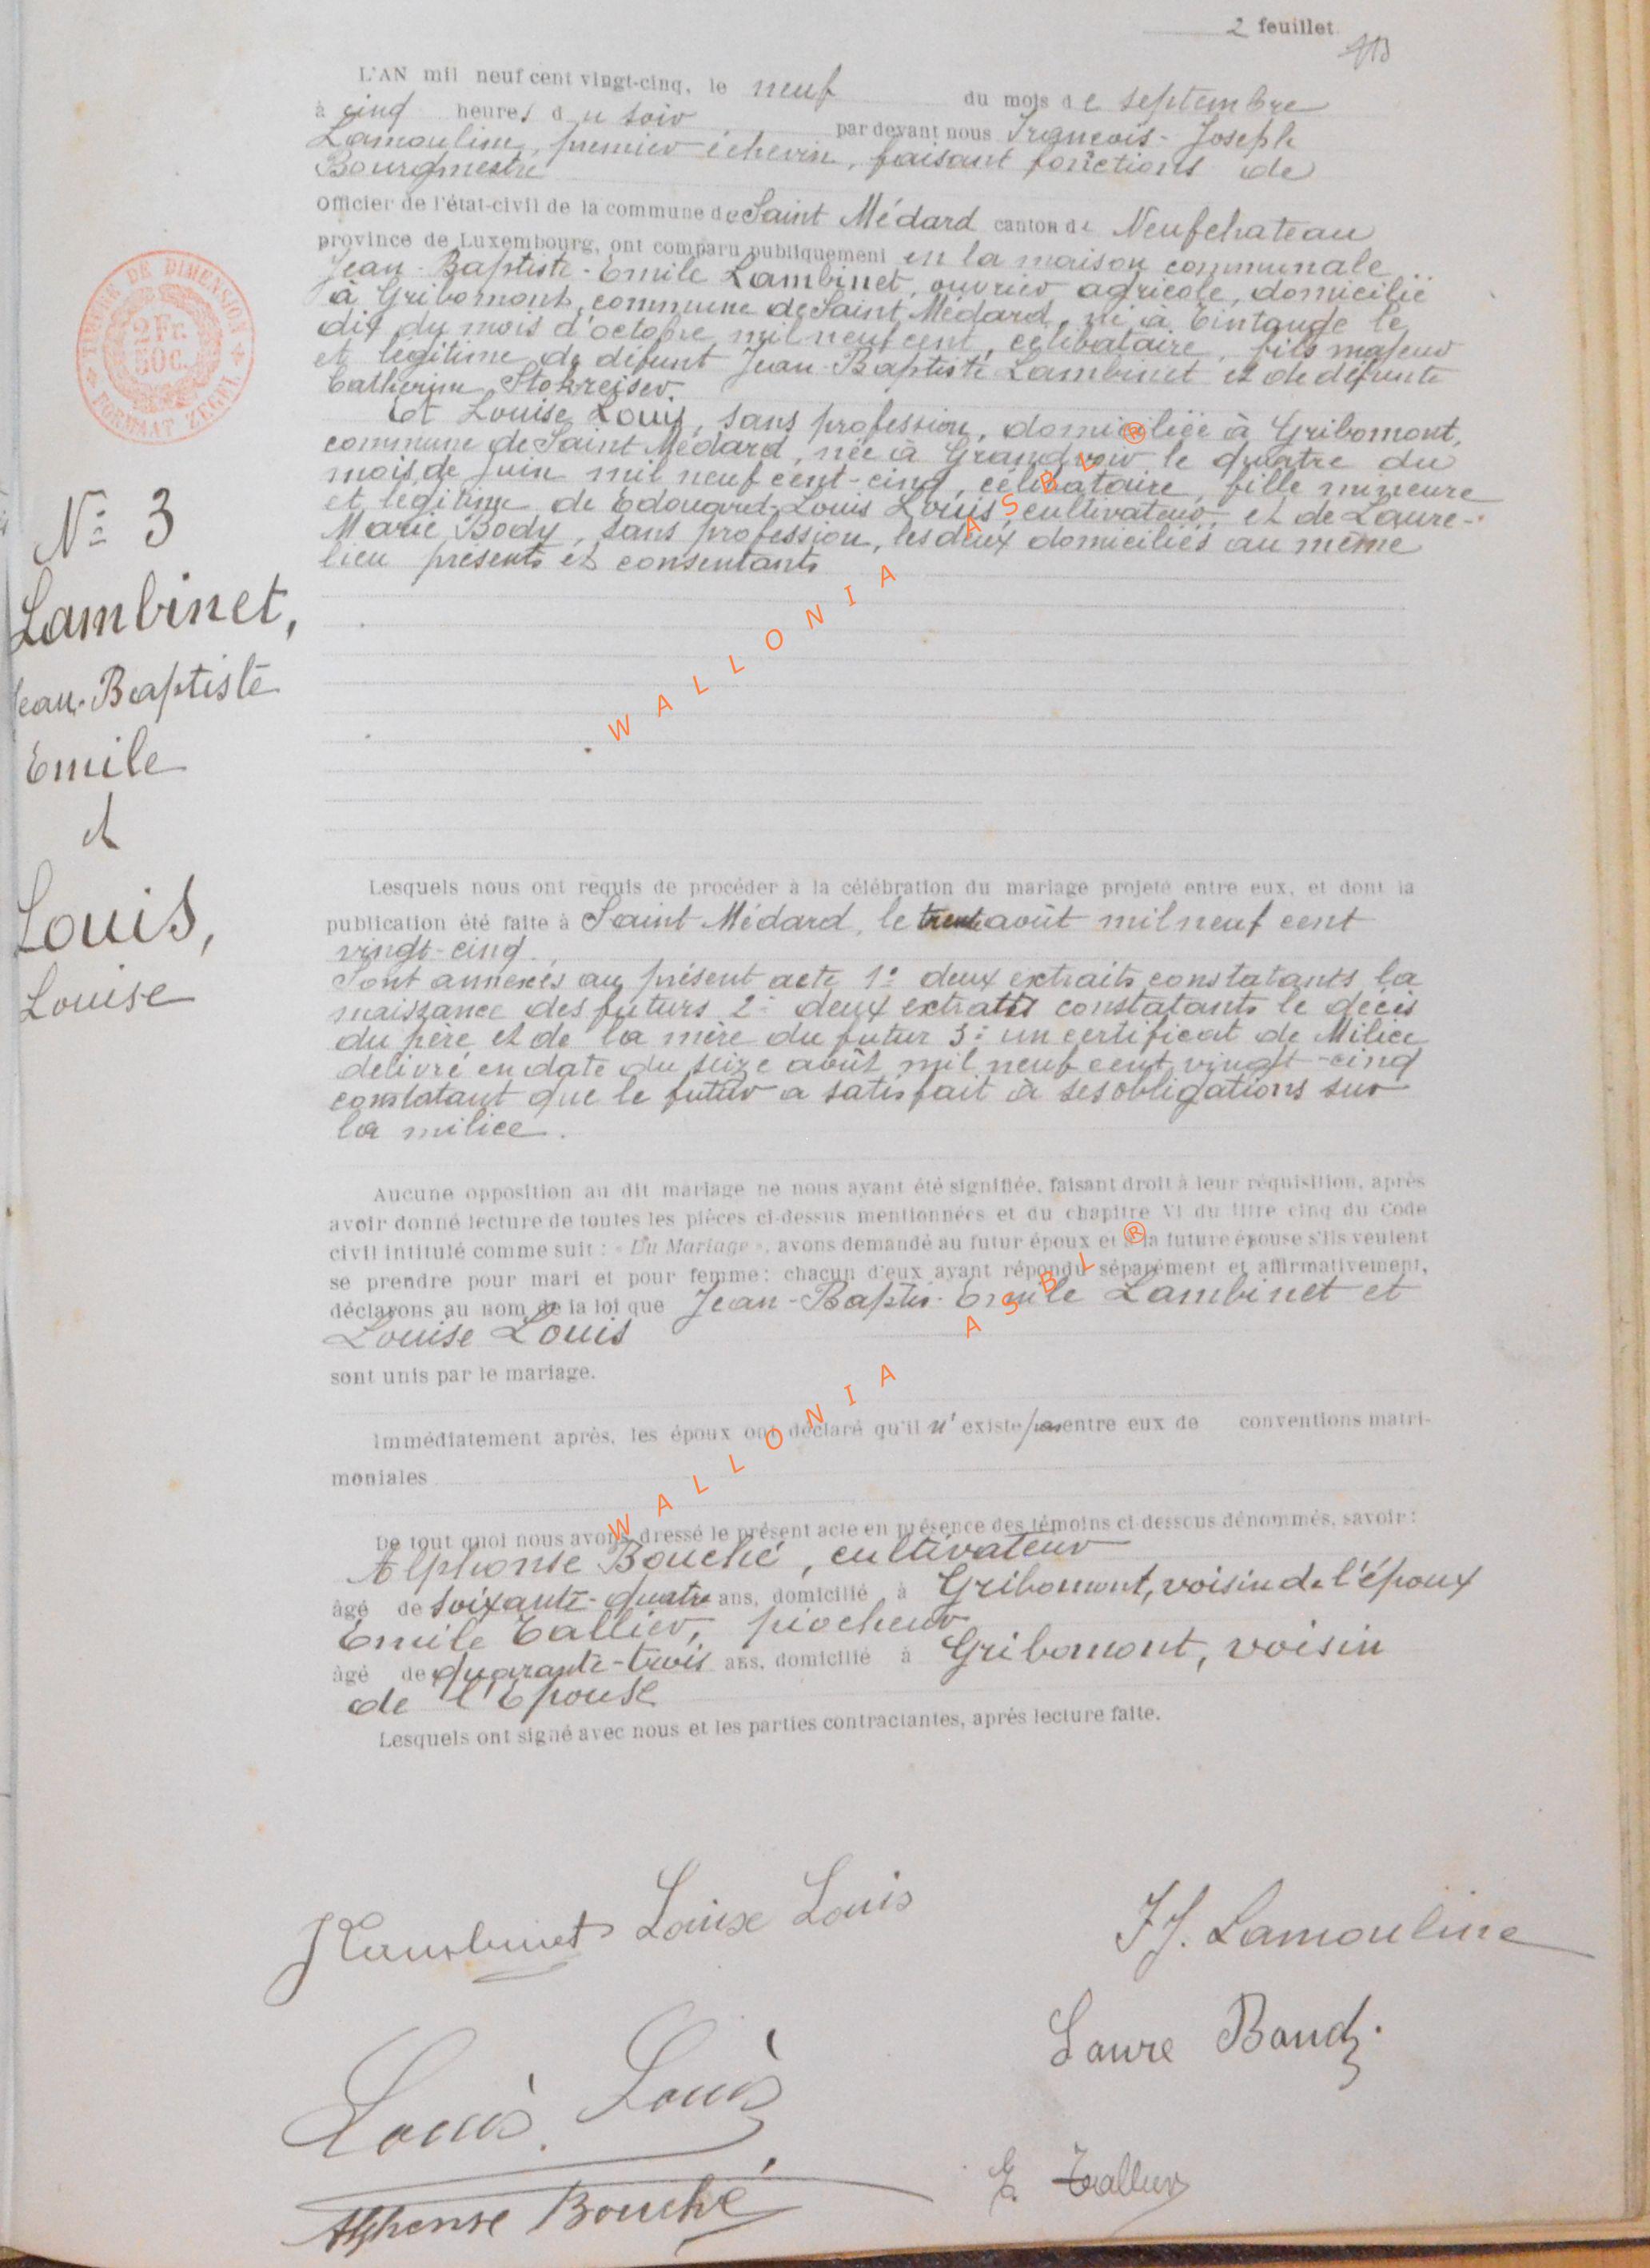 2 feuillet.
L'AN mil neuf cent vingt-cinq, le neuf du mois de septembre
à cinq heures du soir par devant nous François-Joseph
Lamouline, premier échevin, faisant fonctions de
Bourgmestre
officier de l'état-civil de la commune de Saint Médard canton de Neufchateau
province de Luxembourg, ont comparu publiquement en la maison communale
Jean-Baptiste-Emile Lambinet, ouvrier agricole, domicilié
à Gribomont, commune de Saint Médard, né à Tintange le
dix du mois d'octobre mil neuf cent, célibataire, fils majeur
et légitime de défunt Jean-Baptiste Lambinet et de défunte
Catherine Stokreiser.
Et Louise Louis, sans profession, domiciliée à Gribomont,
commune de Saint Médard, née à Grandvoir le quatre du
mois de juin mil neuf cent-cinq, célibataire, fille mineure
et légitime de Edouard-Louis Louis, cultivateur, et de Laure-
Marie Body, sans profession, les deux domiciliés au même
lieu présents et consentants
TIMBRE DE DIMENSION
2 Fr.
50 C.
FORMAAT ZEGEL
Nº 3
Lambinet,
Jean-Baptiste
Emile
et
Louis,
Louise
Lesquels nous ont requis de procéder à la célébration du mariage projeté entre eux, et dont la
publication été faite à Saint Médard, le trente août mil neuf cent
vingt-cinq.
Sont annexés au présent acte 1º deux extraits constatants la
naissance des futurs 2º deux extraits constatants le décès
du père et de la mère du futur 3º un certificat de Milice
délivré en date du seize août mil neuf cent vingt-cinq
constatant que le futur a satisfait à ses obligations sur
la milice.
Aucune opposition au dit mariage ne nous ayant été signifiée, faisant droit à leur réquisition, après
avoir donné lecture de toutes les pièces ci-dessus mentionnées et du chapitre VI du titre cinq du Code
civil intitulé comme suit : « Du Mariage », avons demandé au futur époux et à la future épouse s'ils veulent
se prendre pour mari et pour femme : chacun d'eux ayant répondu séparément et affirmativement,
déclarons au nom de la loi que Jean-Baptis-Emile Lambinet et
Louise Louis
sont unis par le mariage.
Immédiatement après, les époux ont déclaré qu'il n'existe pas entre eux de conventions matri-
moniales
De tout quoi nous avons dressé le présent acte en présence des témoins ci-dessous dénommés, savoir :
Alphonse Bouché, cultivateur
âgé de soixante-quatre ans, domicilié à Gribomont, voisin de l'époux
Emile Tallier, piocheur
âgé de quarante-trois ans, domicilié à Gribomont, voisin
de l'Epouse
Lesquels ont signé avec nous et les parties contractantes, après lecture faite.
JLambinet Louise Louis
FJ. Lamouline
Laure Baudy.
Louis Louis
E. Tallier
Alphonse Bouché
WALLONIA ASBL ®
WALLONIA ASBL ®